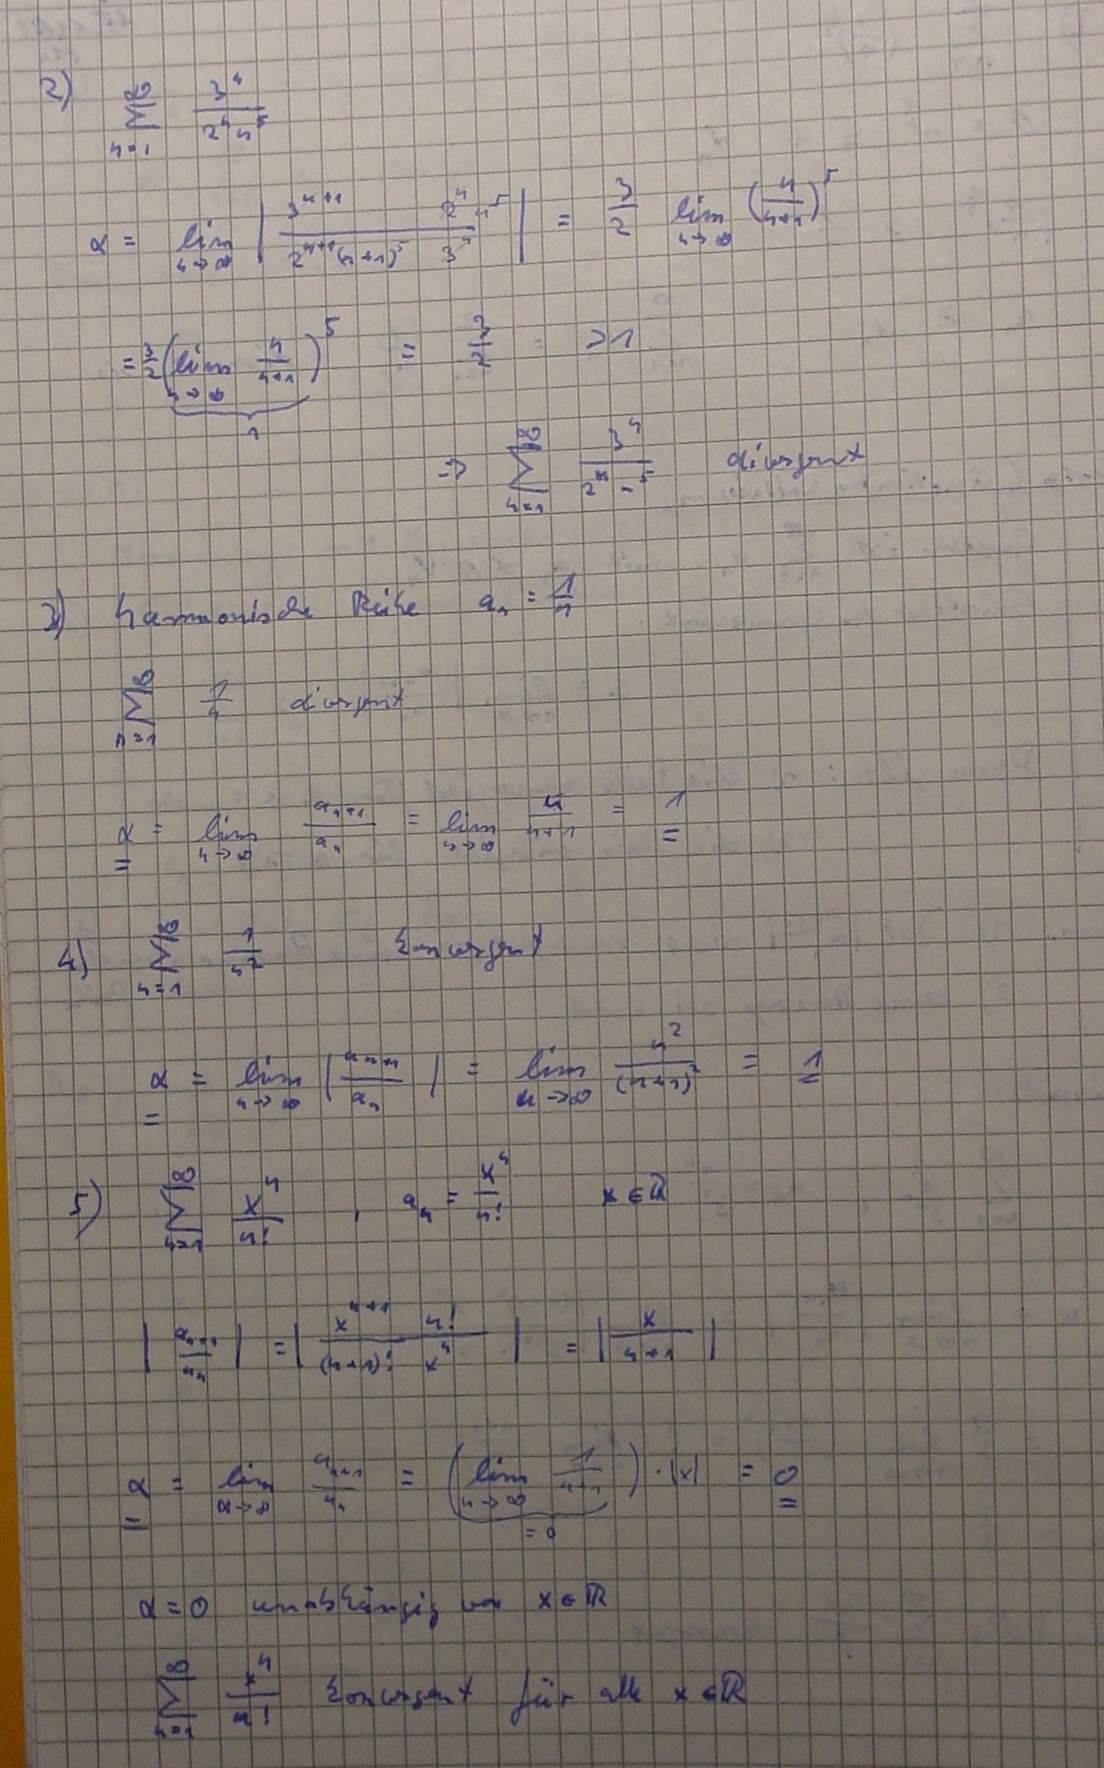 2) ∑_{n=1}^{∞} 3^n / (2^n n^5)
α = lim_{n→∞} | 3^{n+1} / (2^{n+1} (n+1)^5) · 2^n n^5 / 3^n | = 3/2 lim_{n→∞} (n/(n+1))^5
= 3/2 (lim_{n→∞} n/(n+1))^5 = 3/2 > 1
1
⇒ ∑_{n=1}^{∞} 3^n / (2^n n^5) divergent
3) harmonische Reihe a_n = 1/n
∑_{n=1}^{∞} 1/n divergent
α = lim_{n→∞} a_{n+1}/a_n = lim_{n→∞} n/(n+1) = 1
4) ∑_{n=1}^{∞} 1/n^2 konvergent
α = lim_{n→∞} | a_{n+1}/a_n | = lim_{n→∞} n^2/(n+1)^2 = 1
5) ∑_{n=1}^{∞} x^n/n! , a_n = x^n/n! x ∈ ℝ
| a_{n+1}/a_n | = | x^{n+1}/(n+1)! · n!/x^n | = | x/(n+1) |
α = lim_{α→∞} a_{n+1}/a_n = (lim_{n→∞} 1/(n+1)) · |x| = 0
= 0
α = 0 unabhängig von x ∈ ℝ
∑_{n=1}^{∞} x^n/n! konvergent für alle x ∈ ℝ